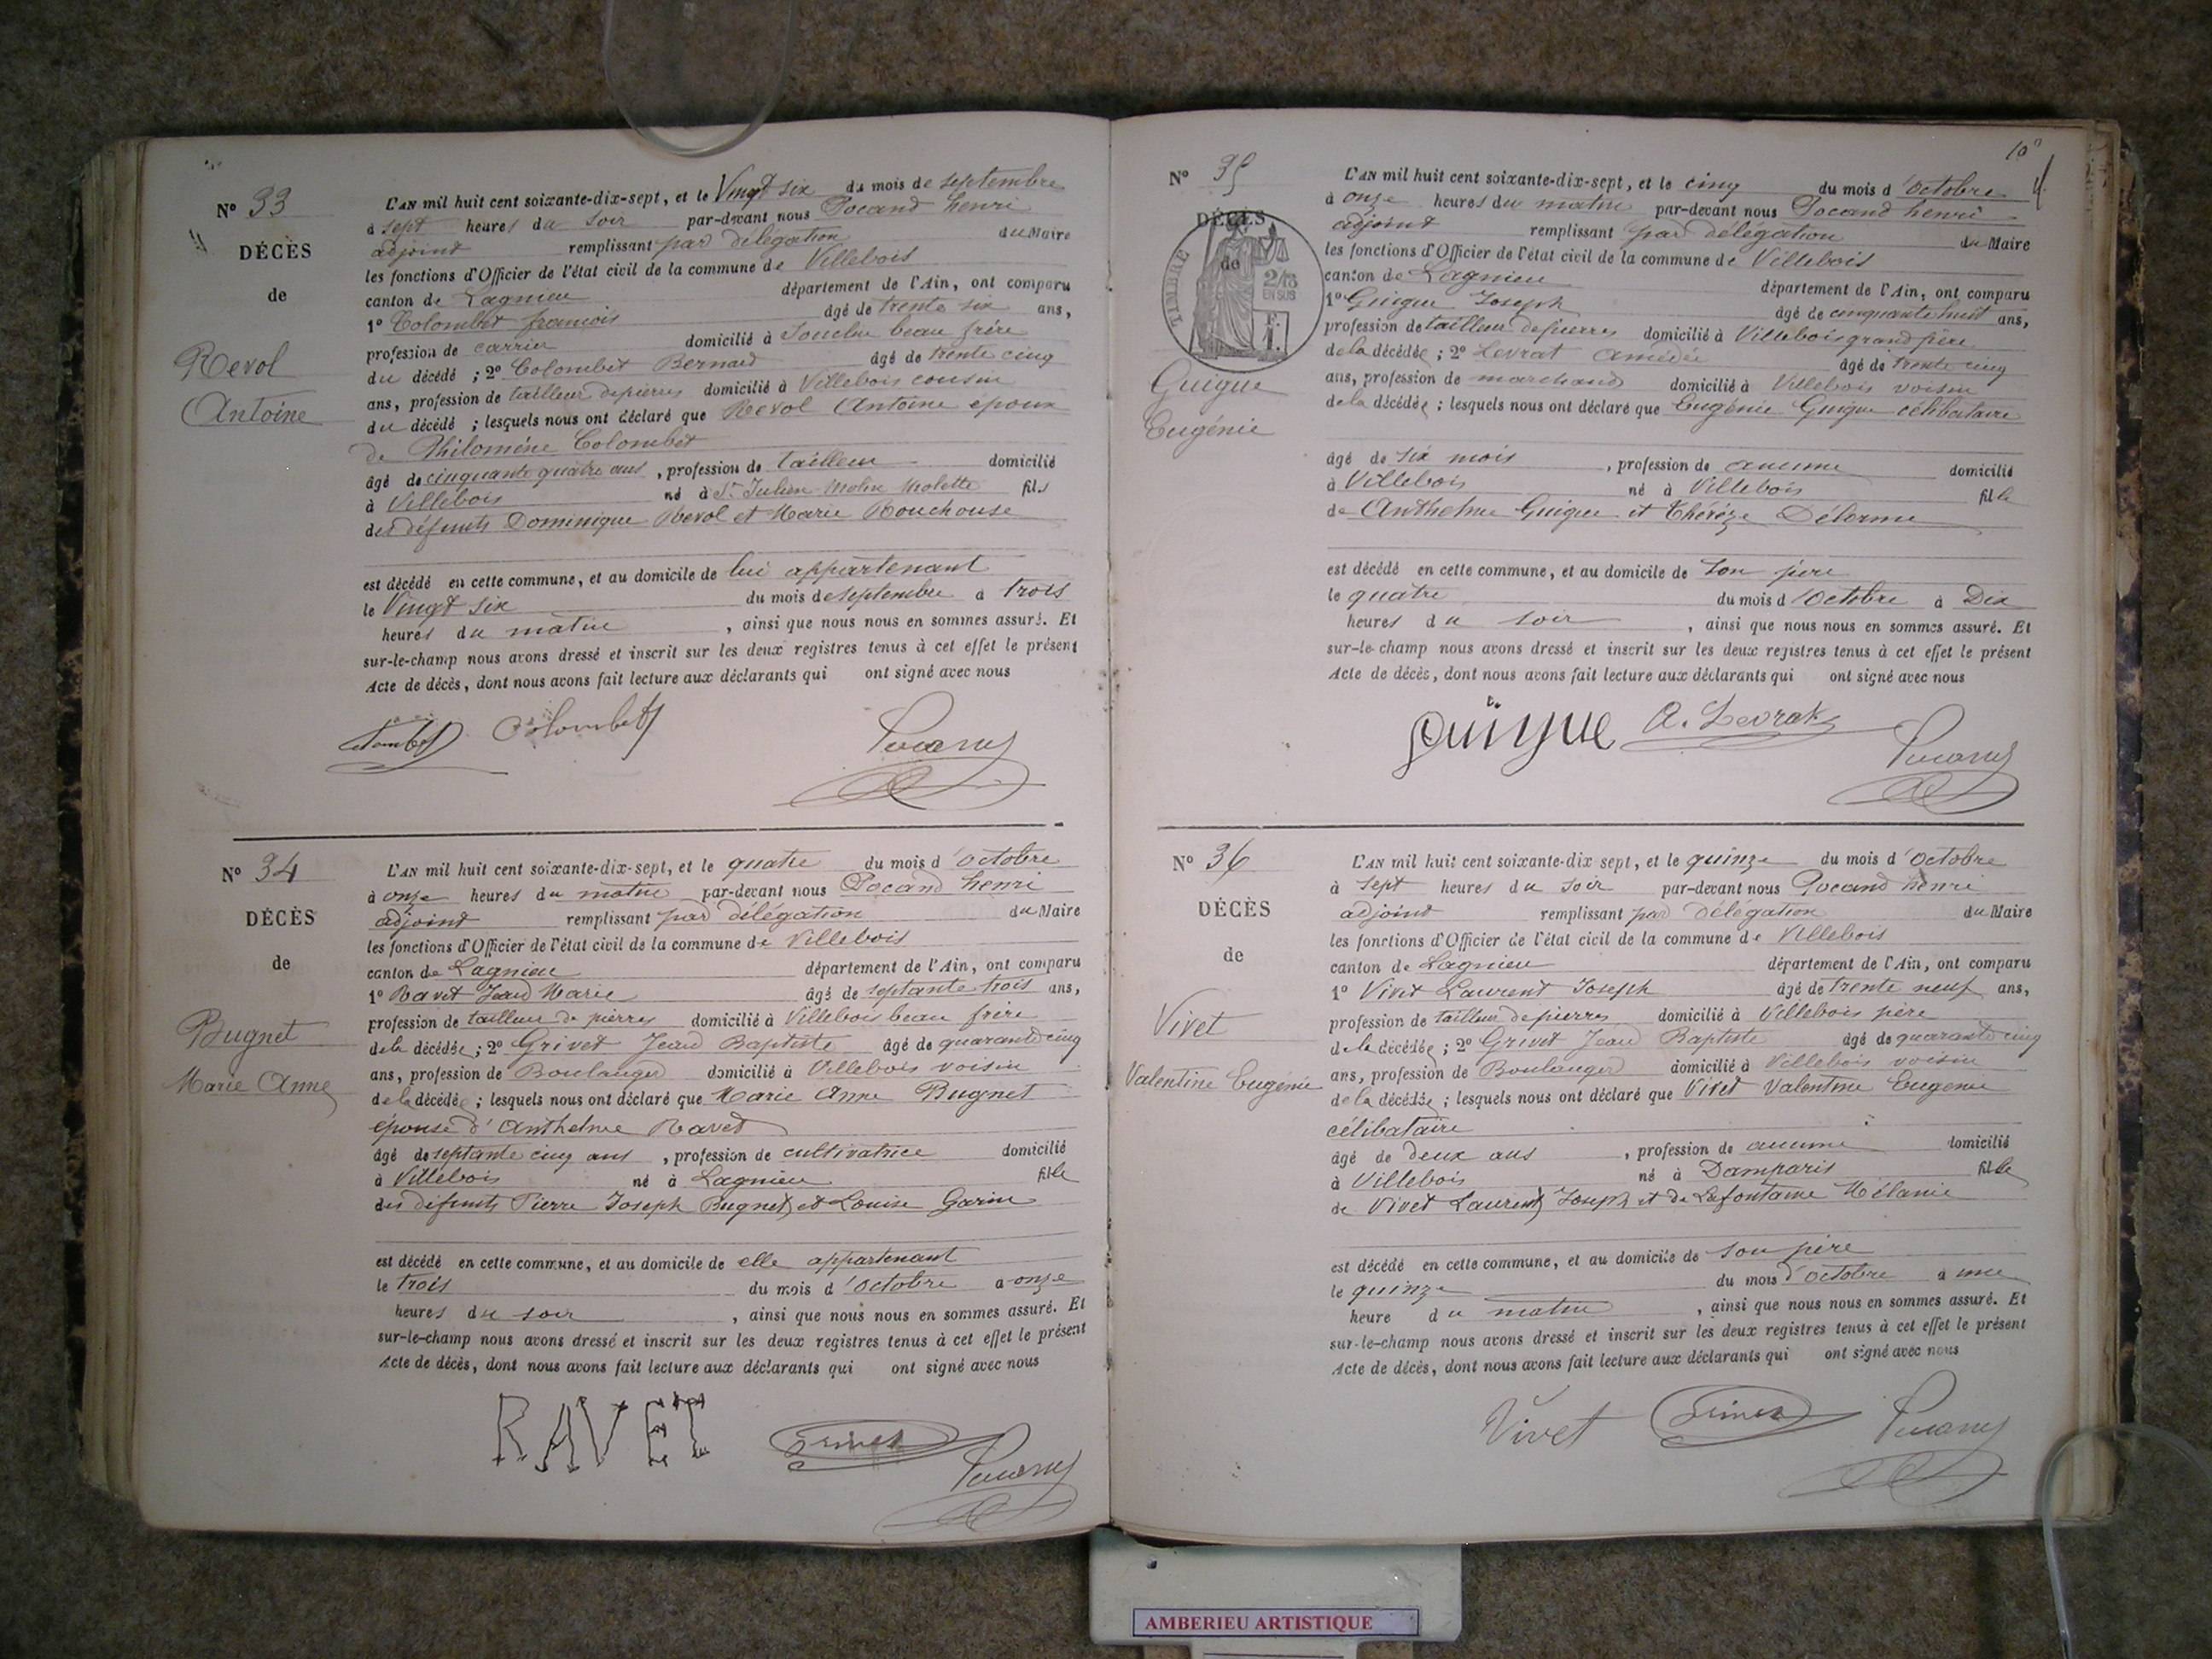 Nº 33
DÉCÈS
de
Revol
Antoine
L'AN mil huit cent soixante-dix-sept, et le Vingt six du mois de septembre
à sept heures du soir par-devant nous Pocand henri
adjoint remplissant par délégation du Maire
les fonctions d'Officier de l'état civil de la commune de Villebois
canton de Lagnieu département de l'Ain, ont comparu
1º Colombet françois âgé de trente six ans,
profession de carrier domicilié à Souclin beau frère
du décédé ; 2º Colombet Bernard âgé de trente cinq
ans, profession de tailleur de pierres domicilié à Villebois cousin
du décédé ; lesquels nous ont déclaré que Revol Antoine époux
de Philomène Colombet
âgé de cinquante quatre ans , profession de tailleur domicilié
à Villebois né à St Julien Molin Molette fils
des défunts Dominique Revol et Marie Rouchouse
est décédé en cette commune, et au domicile de lui appartenant
le Vingt six du mois de septembre à trois
heures du matin , ainsi que nous nous en sommes assuré. Et
sur-le-champ nous avons dressé et inscrit sur les deux registres tenus à cet effet le présent
Acte de décès, dont nous avons fait lecture aux déclarants qui ont signé avec nous
Colombet Colombet
Nº 34
DÉCÈS
de
Bugnet
Marie Anne
L'AN mil huit cent soixante-dix-sept, et le quatre du mois d'octobre
à onze heures du matin par-devant nous Pocand henri
adjoint remplissant par délégation du Maire
les fonctions d'Officier de l'état civil de la commune de Villebois
canton de Lagnieu département de l'Ain, ont comparu
1º Ravet Jean Marie âgé de septante trois ans,
profession de tailleur de pierres domicilié à Villebois beau frère
de la décédée ; 2º Grivet Jean Baptiste âgé de quarante cinq
ans, profession de Boulanger domicilié à Villebois voisin
de la décédée ; lesquels nous ont déclaré que Marie Anne Bugnet
épouse d'Anthelme Ravet
âgé de septante cinq ans , profession de cultivatrice domicilié
à Villebois né à Lagnieu fille
des défunts Pierre Joseph Bugnet et Louise Garin
est décédé en cette commune, et au domicile de elle appartenant
le trois du mois d'octobre à onze
heures du soir , ainsi que nous nous en sommes assuré. Et
sur-le-champ nous avons dressé et inscrit sur les deux registres tenus à cet effet le présent
Acte de décès, dont nous avons fait lecture aux déclarants qui ont signé avec nous
RAVET Grivet
Nº 35
DÉCÈS
de
TIMBRE
2/10
EN SUS
Guigue
Eugénie
L'AN mil huit cent soixante-dix-sept, et le cinq du mois d'octobre
à onze heures du matin par-devant nous Pocand henri
adjoint remplissant par délégation du Maire
les fonctions d'Officier de l'état civil de la commune de Villebois
canton de Lagnieu département de l'Ain, ont comparu
1º Guigue Joseph âgé de cinquante huit ans,
profession de tailleur de pierres domicilié à Villebois grand père
de la décédée ; 2º Levrat Amédée âgé de trente cinq
ans, profession de marchand domicilié à Villebois voisin
de la décédée ; lesquels nous ont déclaré que Eugénie Guigue célibataire
âgé de six mois , profession de aucune domicilié
à Villebois né à Villebois fille
de Anthelme Guigue et Thérèze Delorme
est décédé en cette commune, et au domicile de son père
le quatre du mois d'octobre à Dix
heures du soir , ainsi que nous nous en sommes assuré. Et
sur-le-champ nous avons dressé et inscrit sur les deux registres tenus à cet effet le présent
Acte de décès, dont nous avons fait lecture aux déclarants qui ont signé avec nous
guigue A. Levrat
Nº 36
DÉCÈS
de
Vivet
Valentine Eugénie
L'AN mil huit cent soixante-dix sept, et le quinze du mois d'octobre
à sept heures du soir par-devant nous Pocand henri
adjoint remplissant par délégation du Maire
les fonctions d'Officier de l'état civil de la commune de Villebois
canton de Lagnieu département de l'Ain, ont comparu
1º Vivet Laurent Joseph âgé de trente neuf ans,
profession de tailleur de pierres domicilié à Villebois père
de la décédée ; 2º Grivet Jean Baptiste âgé de quarante cinq
ans, profession de Boulanger domicilié à Villebois voisin
de la décédée ; lesquels nous ont déclaré que Vivet Valentine Eugénie
célibataire
âgé de deux ans , profession de aucune domicilié
à Villebois né à Damparis fille
de Vivet Laurent Joseph et de Lafontaine Mélanie
est décédé en cette commune, et au domicile de son père
le quinze du mois d'octobre à une
heure du matin , ainsi que nous nous en sommes assuré. Et
sur-le-champ nous avons dressé et inscrit sur les deux registres tenus à cet effet le présent
Acte de décès, dont nous avons fait lecture aux déclarants qui ont signé avec nous
Vivet Grivet
AMBERIEU ARTISTIQUE